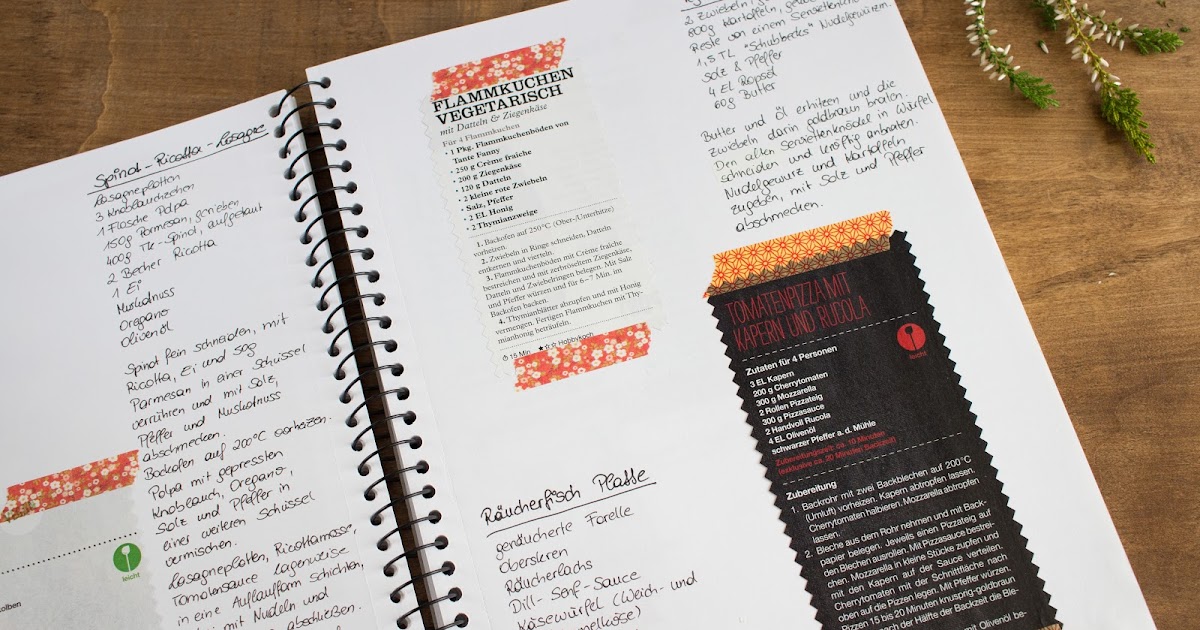 Spinat-Ricotta-Lasagne
Lasagneplatten
3 Knoblauchzehen
1 Flasche Polpa
150g Parmesan, gerieben
400g TK-Spinat, aufgetaut
2 Becher Ricotta
1 Ei
Muskatnuss
Oregano
Olivenöl
Spinat fein schneiden, mit
Ricotta, Ei und 50g
Parmesan in einer Schüssel
verrühren und mit Salz,
Pfeffer und Muskatnuss
abschmecken.
Backofen auf 200°C vorheizen.
Polpa mit gepressten
Knoblauch, Oregano,
Salz und Pfeffer in
einer weiteren Schüssel
vermischen.
Lasagneplatten, Ricottamasse,
Tomatensauce lagenweise
in eine Auflaufform schichten,
mit Nudeln und
abschließen.
olben
leicht
FLAMMKUCHEN
VEGETARISCH
mit Datteln & Ziegenkäse
Für 4 Flammkuchen
• 1 Pkg. Flammkuchenböden von
Tante Fanny
• 250 g Crème fraîche
• 200 g Ziegenkäse
• 120 g Datteln
• 2 kleine rote Zwiebeln
• Salz, Pfeffer
• 2 EL Honig
• 2 Thymianzweige
1. Backofen auf 250°C (Ober-/Unterhitze)
vorheizen.
2. Zwiebeln in Ringe schneiden, Datteln
entkernen und vierteln.
3. Flammkuchenböden mit Crème fraîche
bestreichen und mit zerbröseltem Ziegenkäse,
Datteln und Zwiebelringen belegen. Mit Salz
und Pfeffer würzen und für 6–7 Min. im
Backofen backen.
4. Thymianblätter abzupfen und mit Honig
vermengen. Fertigen Flammkuchen mit Thy-
mianhonig beträufeln.
15 Min. ★☆☆ Hobbykoch
Räucherfisch Platte
geräucherte Forelle
Oberskren
Räucherlachs
Dill-Senf-Sauce
Käsewürfel (Weich- und
2 Zwiebeln,
800g Kartoffeln,
Reste von einem Serviettenknödel
1,5 TL "Schuhbecks" Nudelgewürz
Salz & Pfeffer
4 EL Rapsöl
60g Butter
Butter und Öl erhitzen und die
Zwiebeln darin goldbraun braten.
Den alten Serviettenknödel in Würfel
schneiden und kräftig anbraten.
Nudelgewürz und Kartoffeln
zugeben, mit Salz und Pfeffer
abschmecken.
TOMATENPIZZA MIT
KAPERN UND RUCOLA
leicht
Zutaten für 4 Personen
3 EL Kapern
200 g Cherrytomaten
300 g Mozzarella
2 Rollen Pizzateig
300 g Pizzasauce
2 Handvoll Rucola
4 EL Olivenöl
schwarzer Pfeffer a. d. Mühle
Zubereitungszeit: ca. 10 Minuten
(exklusive ca. 20 Minuten Backzeit)
Zubereitung
1. Backrohr mit zwei Backblechen auf 200°C
(Umluft) vorheizen. Kapern abtropfen lassen.
Cherrytomaten halbieren. Mozzarella abtropfen
lassen.
2. Bleche aus dem Rohr nehmen und mit Back-
papier belegen. Jeweils einen Pizzateig auf
den Blechen ausrollen. Mit Pizzasauce bestrei-
chen. Mozzarella in kleine Stücke zupfen und
mit den Kapern auf der Sauce verteilen.
Cherrytomaten mit der Schnittfläche nach
oben auf die Pizzen legen. Mit Pfeffer würzen.
Pizzen 15 bis 20 Minuten knusprig-goldbraun
nach der Hälfte der Backzeit die Ble-
mit Olivenöl be-